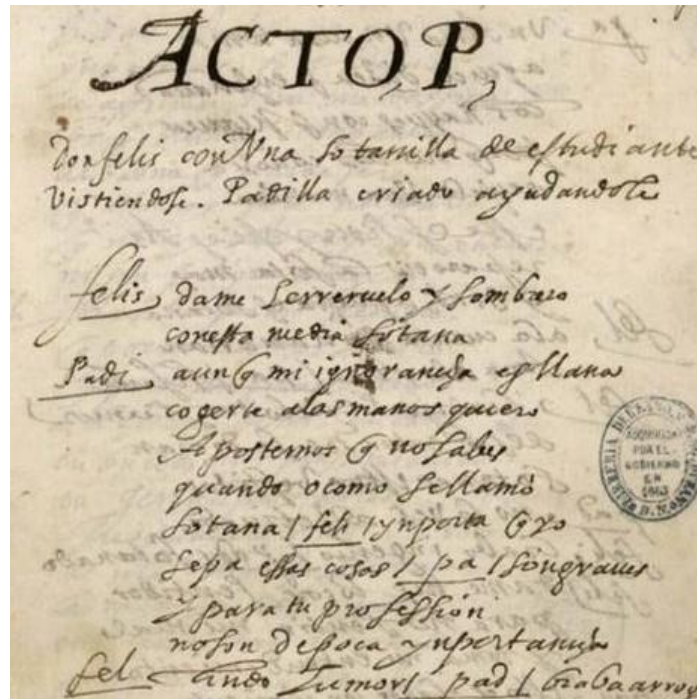 ACTO, P,
Don felis con Vna sotanilla de estudiante
vistiendose. Padilla criado ayudandole
felis dame ferreruelo y sombrero
con esta media sotana
Padi aunq mi ignorancia es llana
cogerte a las manos quiero
Apostemos q no sabes
quando o como se llamo
sotana / feli / ynporta q yo
sepa essas cosas / pa / son graues
y para tu profession
no son de poca ynportancia
fel lindo umor / pad /